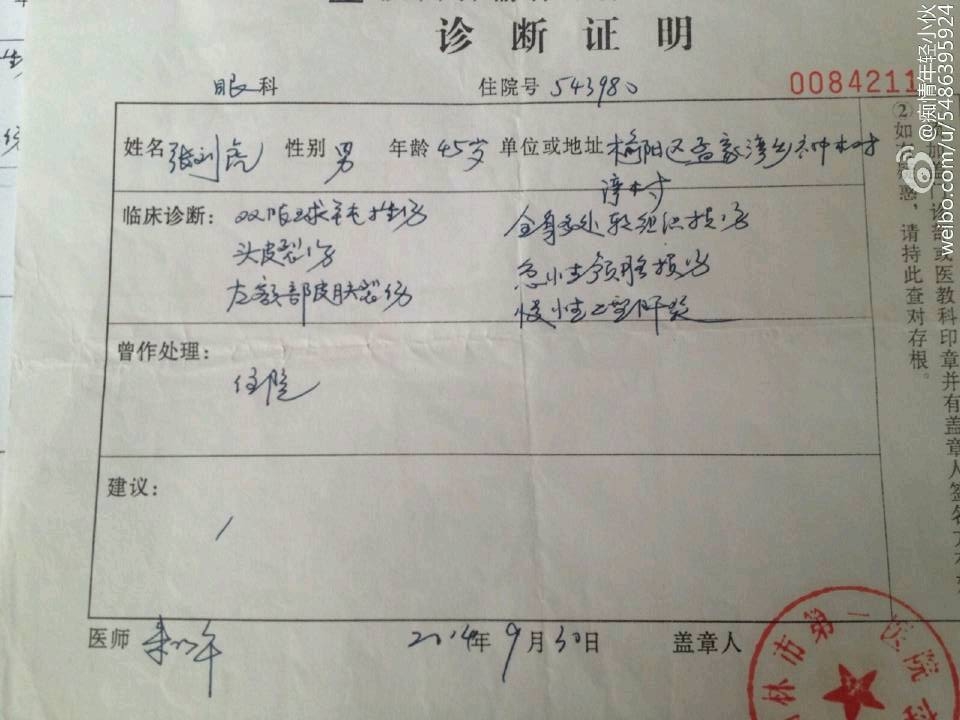 诊断证明
眼科 住院号 543980 0084211
姓名 张刘虎 性别 男 年龄 45岁 单位或地址 榆阳区孟家湾乡
临床诊断： 双眼球钝挫伤 全身多处软组织损伤
头皮裂伤 急性颅脑损伤
左额部皮肤裂伤 慢性乙型肝炎
曾作处理：
住院
建议：
/
医师 2014年9月30日 盖章人
林市第一医院
②
如有疑惑，请持此查对存根。
诊部或医教科印章并有盖章人签名方
@痴情年轻小伙
weibo.com/u/5486395924